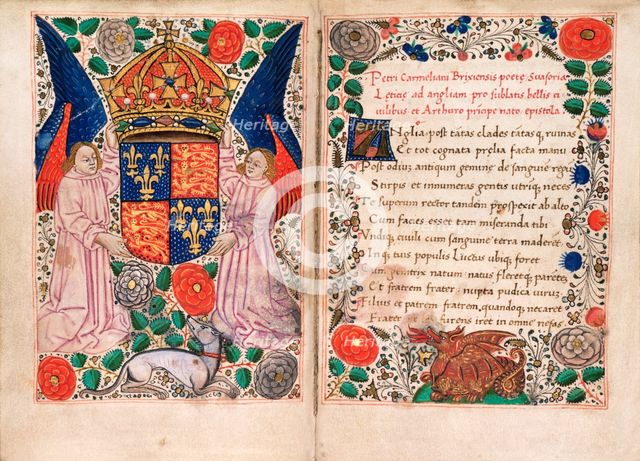 Petri Carmeliani Brixiensis poete Suasoria
Leticie ad angliam pro sublatis bellis ci
uilibus et Arthuro principe nato epistola
ANglia post tantas clades tantasq ruinas
Et tot cognata prelia facta manu
Post odius antiquum gemine de sanguine
Stirpis et innumeras gentis utriusq neces
Te superum rector tandem prospexit ab alto
Cum faces esset tam miseranda tibi
Vndiq ciuili cum sanguine terra maderet
Inq tuis populis Luctus ubiq foret
Cum genitrix natum natus fleretq parentes
Et fratrem frater nupta pudica uirum
Filius et patrem fratrem quandoq necaret
Frater et furens iret in omne nefas
Heritage
Heritage
Heritage
Heritage